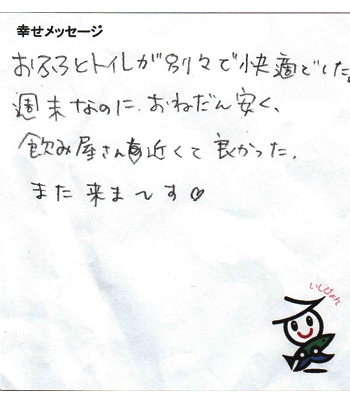 幸せメッセージ
おふろとトイレが別々で快適でした。
週末なのに、おねだん安く、
飲み屋さんも近くて良かった。
また来ま〜す♡